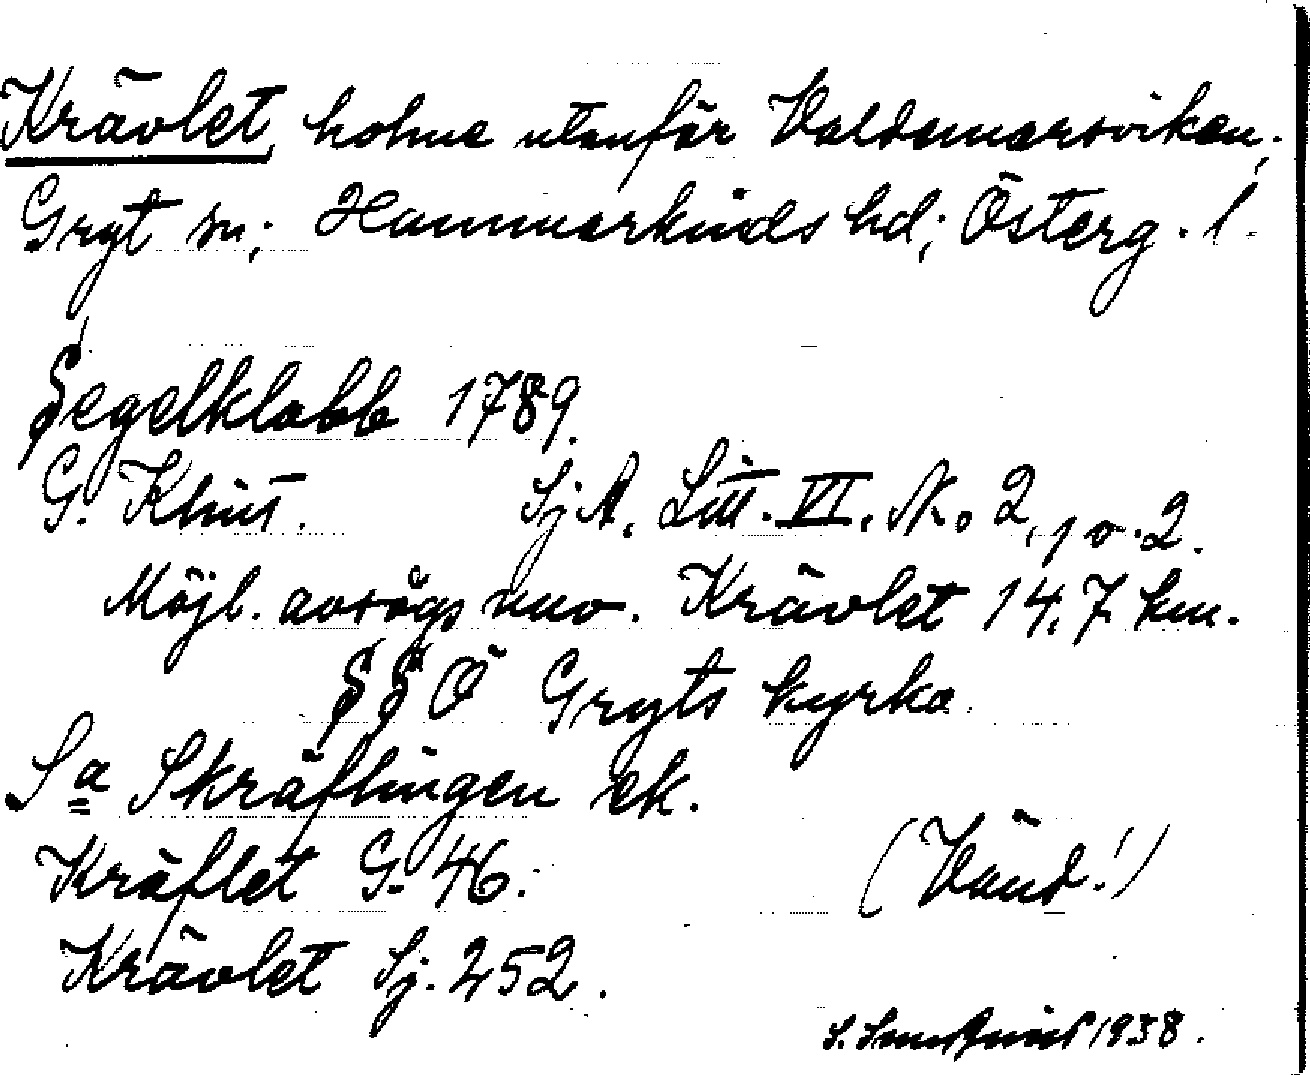 Krävlet, holme utanför Valdemarsviken;
Gryt sn; Hammarkinds hd; Österg. l.
Segelklabb 1789.
G. Klint. SjA, Litt. VI. N:o 2, 1 o. 2.
Möjl. avsågs nuv. Krävlet 14,7 km.
SSÖ Gryts kyrka.
Sa Skräflingen ek.
Kräflet G. 46.
(Vänd!)
Krävlet Sj. 252.
S. 1938.